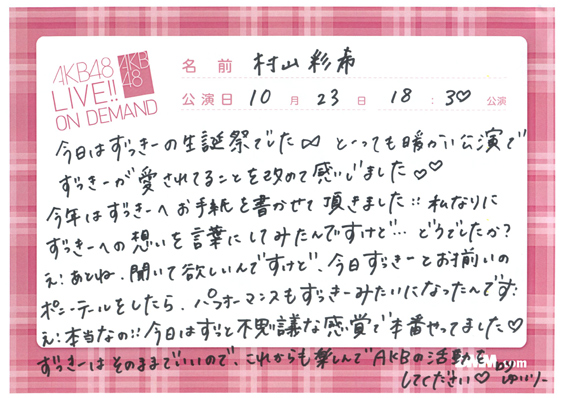 AKB48
LIVE!!
ON DEMAND
AKB
48
名前 村山彩希
公演日 10月23日 18:30公演
今日はずっきーの生誕祭でした とーっても暖かい公演で
ずっきーが愛されてることを改めて感じました♡♡
今年はずっきーへお手紙を書かせて頂きました!! 私なりに
ずっきーへの想いを言葉にしてみたんですけど… どうでしたか?
え!あとね、聞いて欲しいんですけど、今日ずっきーとお揃いの
ポニーテールをしたら、パフォーマンスもずっきーみたいになったんです!
え!本当なの!!今日はずっと不思議な感覚で本番やってました♡
ずっきーはそのままでいいので、これからも楽しんでAKBの活動を
してください♡ ゆいりー
DMM.com